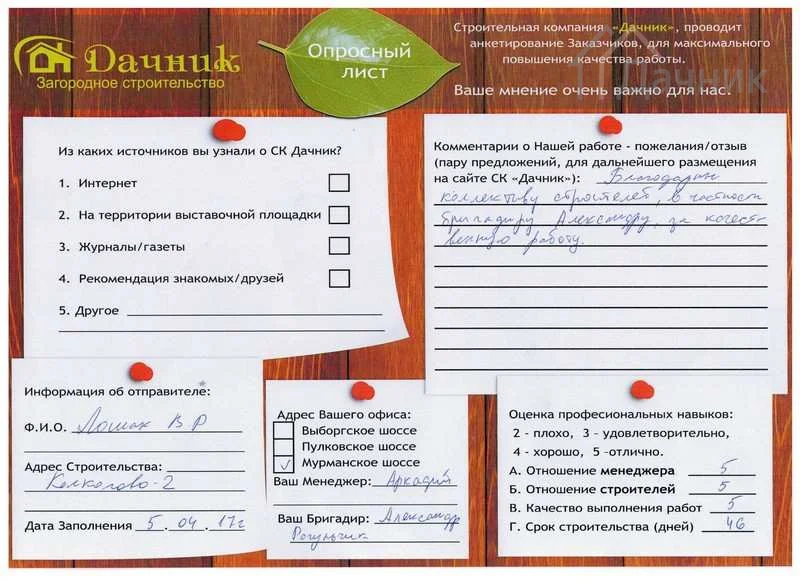 Дачник
Загородное строительство
Опросный
лист
Строительная компания «Дачник», проводит
анкетирование Заказчиков, для максимального
повышения качества работы.
Ваше мнение очень важно для нас.
Дачник
Из каких источников вы узнали о СК Дачник?
1. Интернет
2. На территории выставочной площадки
3. Журналы/газеты
4. Рекомендация знакомых/друзей
5. Другое
Комментарии о Нашей работе - пожелания/отзыв
(пару предложений, для дальнейшего размещения
на сайте СК «Дачник»): Благодарим
коллективу строителей, в частности
бригадиру Александру, за качест-
венную работу.
Информация об отправителе:
Ф.И.О. Лошак В Р
Адрес Строительства:
Келколово-2
Дата Заполнения 5.04.17г
Адрес Вашего офиса:
Выборгское шоссе
Пулковское шоссе
✓ Мурманское шоссе
Ваш Менеджер: Аркадий
Ваш Бригадир: Александр
Оценка професиональных навыков:
2 - плохо, 3 - удовлетворительно,
4 - хорошо, 5 -отлично.
А. Отношение менеджера 5
Б. Отношение строителей 5
В. Качество выполнения работ 5
Г. Срок строительства (дней) 46